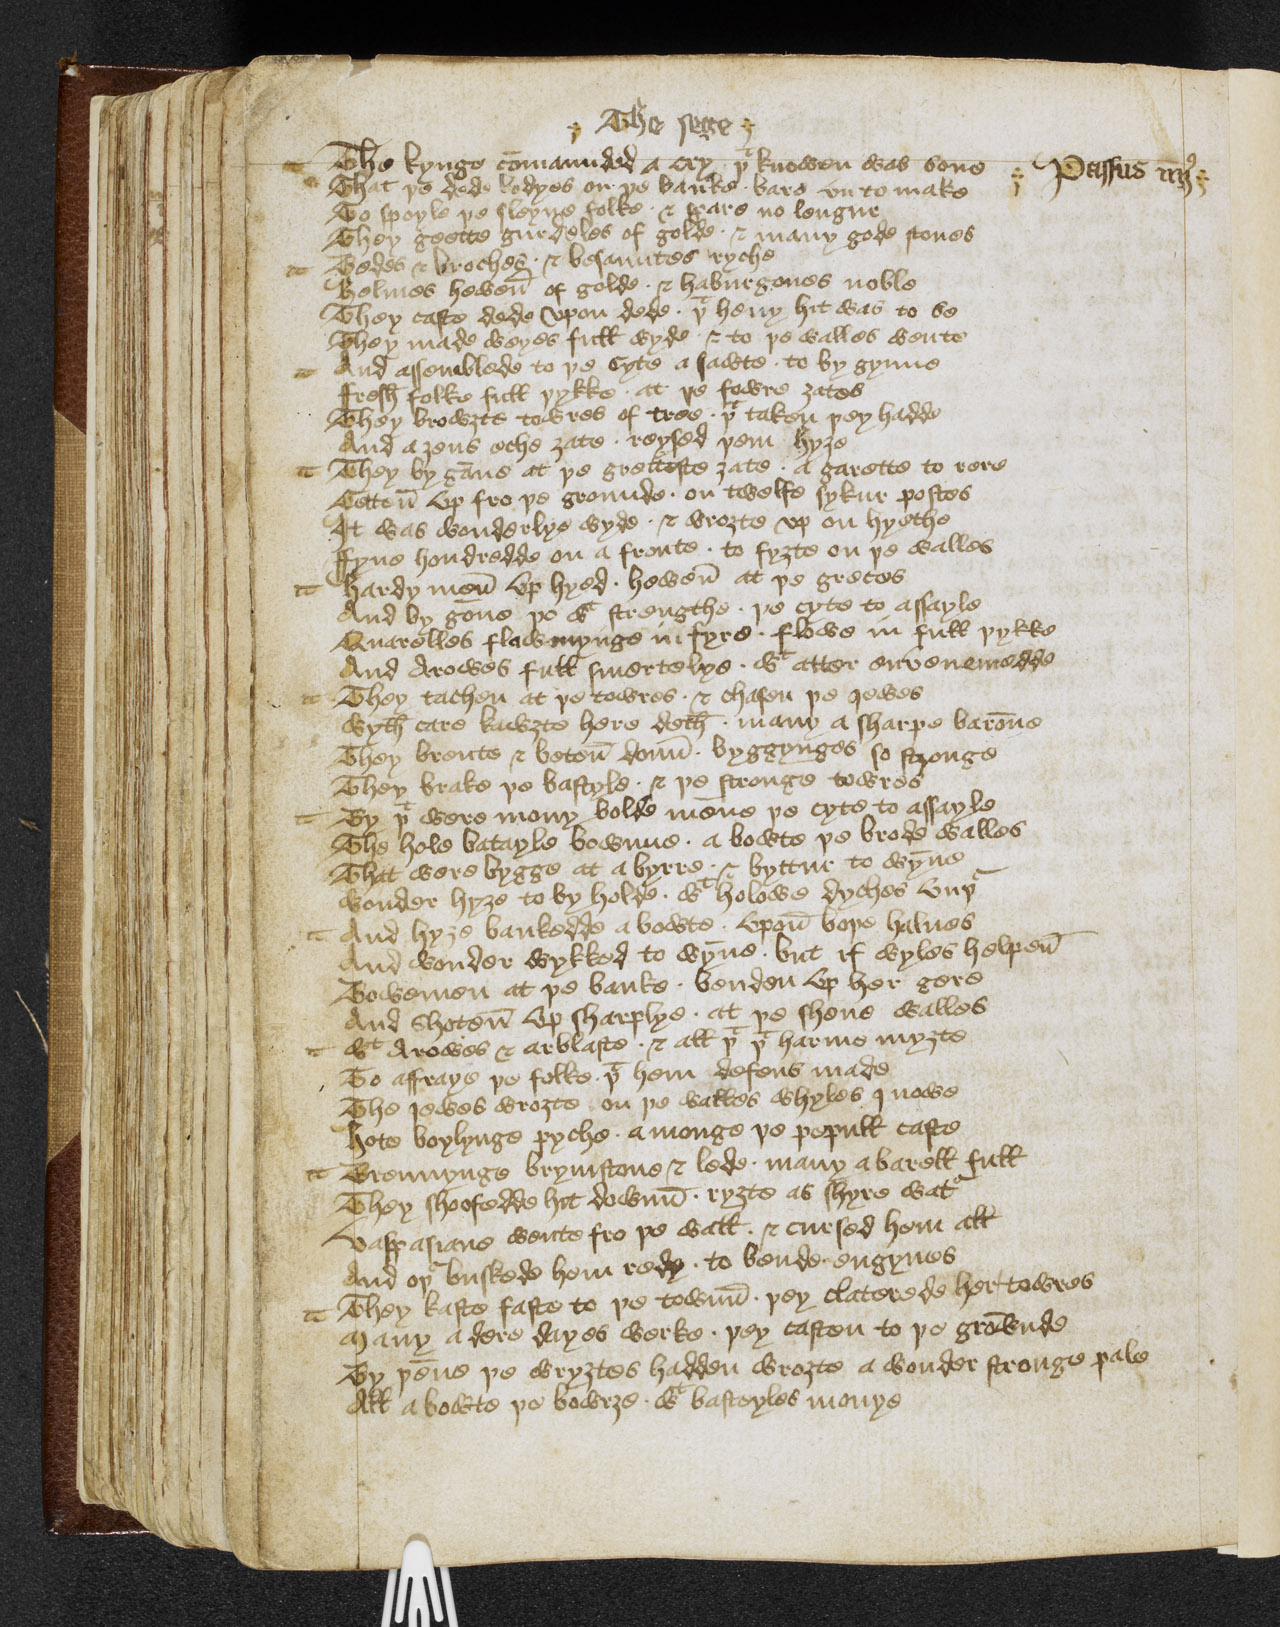 The sege
The kynge cōmaunded a cry · þͭ knowen was sone
Passus iiijꝰ
That þe dede bodyes on þe banke · bare vn to make
To spoyle þe sleyne folke · ⁊ spare no lengur
They geette gurdeles of golde · ⁊ many gode stones
Bedes ⁊ broches · ⁊ besauntes ryche
Helmes hewen̄ of golde · ⁊ haburgones noble
They caste dede vpon dede · þͭ heuy hit was to se
They made weyes full wyde · ⁊ to þe walles wente
And assemblede to þe Cyte a sawte · to by gynne
Fresh folke full þykke · at þe fowre ȝates
They browȝte towres of tree · þͭ taken þey hadde
And a ȝens eche ȝate · reysed þem hyȝe
They by gāne at þe gretteste ȝate · a garette to rere
Setten̄ vp fro þe grounde · on twelfe sykur postes
It was wonderlye wyde · ⁊ wroȝte vp on hyethe
Fyue hondredde on a fronte · to fyȝte on þe walles
Hardy men̄ vp hyed · hewen̄ at þe greces
And by gōne þo wͭ strengthe · þe cyte to assayle
Quarelles flawmynge in fyre · flowe in full þykke
And Arowes full smertelye · wͭ atter envenemedde
They tachen at þe towres · ⁊ chasen þe Iewes
Wyth care kawȝte here deth · many a sharpe barōne
They brente ⁊ beten̄ doun̄ · byggynges so stronge
They brake þe bastyle · ⁊ þe stronge towres
By þͭ were mony bolde mēne þe cyte to assayle
The hole batayle bownne · a bowte þe brode walles
That were bygge at a byrre · ⁊ byttur to wȳne
Wonder hyȝe to by holde · wͭ holowe dyches vnþ͛
And hyȝe bankedde a bowte · vpon̄ boþe halues
And wonder wykked to wȳne · but if wyles helpen̄
Bowemen at þe banke · benden vp her gere
And shoten̄ vp sharplye · at þe shene walles
Wͭ Arowes ⁊ arblaste · ⁊ all þͭ þͭ harme myȝte
To affraye þe folke · þͭ hem defens made
The Iewes wroȝte on þe walles whyles Inowe
Hote boylynge pyche · amonge þe pepull caste
Brennynge brymstone ⁊ lede · many a barell full
They shofedde hit down̄ · ryȝte as shyre wat͛
Vaspasiane wente fro þe wall · ⁊ cursed hem all
And oþ͛ buskede hem redy · to bende engynes
They kaste faste to þe town̄ · þey claterede her towres
Many a dere dayes werke · þey casten to þe grōwnde
By þēne þe wryȝtes hadden wroȝte a wonder stronge pale
All a bowte þe bowrȝe · wͭ basteyles monye